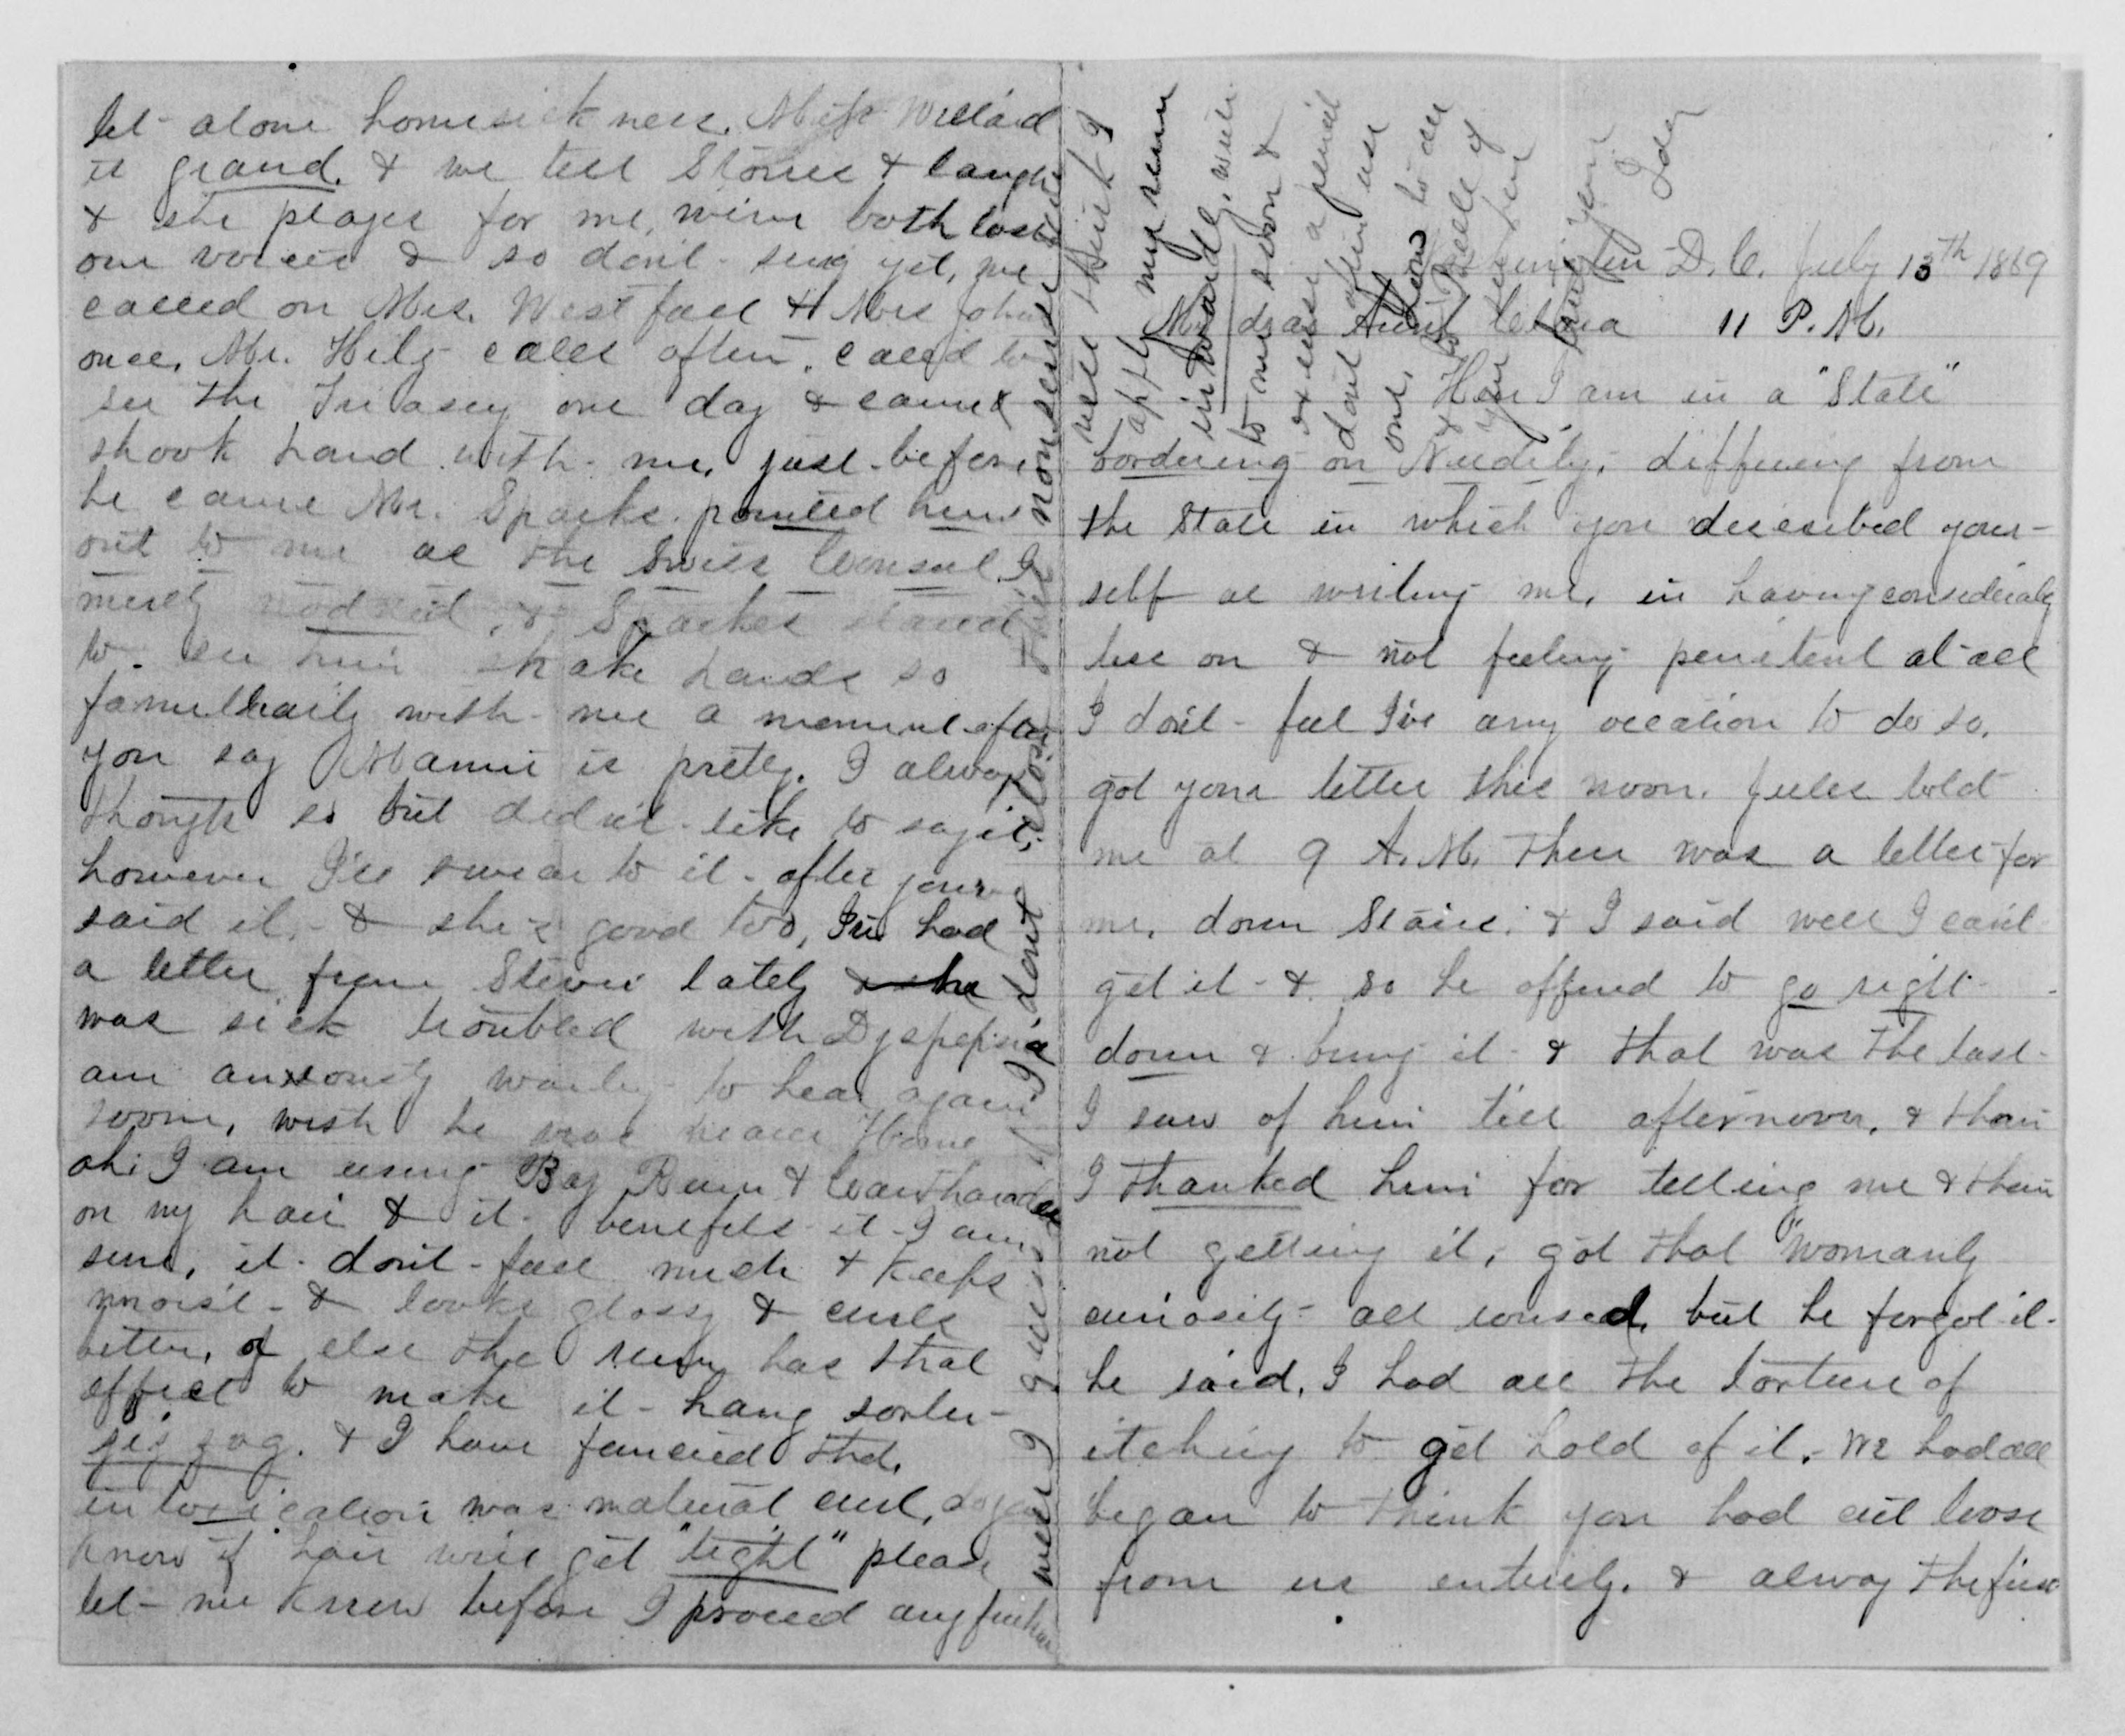 let alone homesickness. Miss Willard
is grand. & we tell Stories & laugh
& she plays for me, we've both lost
our voices & so don't sing yet, we
called on Mrs. Westfall & Mrs John
once, Mr. Hitz calls often. called to
see the Treasury one day & came &
shook hand with me, just before
he came Mr. Sparks pointed him
out to me as the Swiss Consul. I
merely nodded, & Sparkes stared
to see him shake hands so
familliarily with me a moment after
you say Mamie is pretty. I alway
though so but didn't like to say it,
however I'll swear to it after your
said it, & she's good too, I've had
a letter from Stevie lately & she
was sick troubled with Dyspepsia
am anxously waiting to hear again
soon, wish he was nearer Home
oh: I am using Bay Rum & Cantharades
on my hair & it benefits it I am
sure, it don't fall much & keeps
moist & looks glossy & curls
better, or else the rum has that
effect to make it hang sorter
zig zag. & I have fancied that
intoxication was natural curl, do you
know if hair will get "tight" please
let me know before I proceed any further
well I guess I'll close, dont
this nonsense
well think I
apply my rum
inwardly. will
to me soon &
excuse a pencil
dont often use
one, Love to all
Ida
Washington D.C. July 13th 1869
My dear Aunt Clara 11 P.M.
Here I am in a "State"
bordering on Nudity, differing from
the State in which you described your-
self as writing me, in having considerably
less on & not feeling penitent at all
I don't feel I've any occation to do so,
got your letter this noon. Jules told
me at 9 A.M. there was a letter for
me, down Stairs, & I said well I can't
get it & so he offered to go right
down & bring it & that was the last
I saw of him till afternoon, & then
I thanked him for telling me & then
not getting it, got that "womanly
curiosity all roused, but he forgot it
he said, I had all the torture of
itching to get hold of it, We had all
began to think you had cut loose
from us entirely. & alway the first